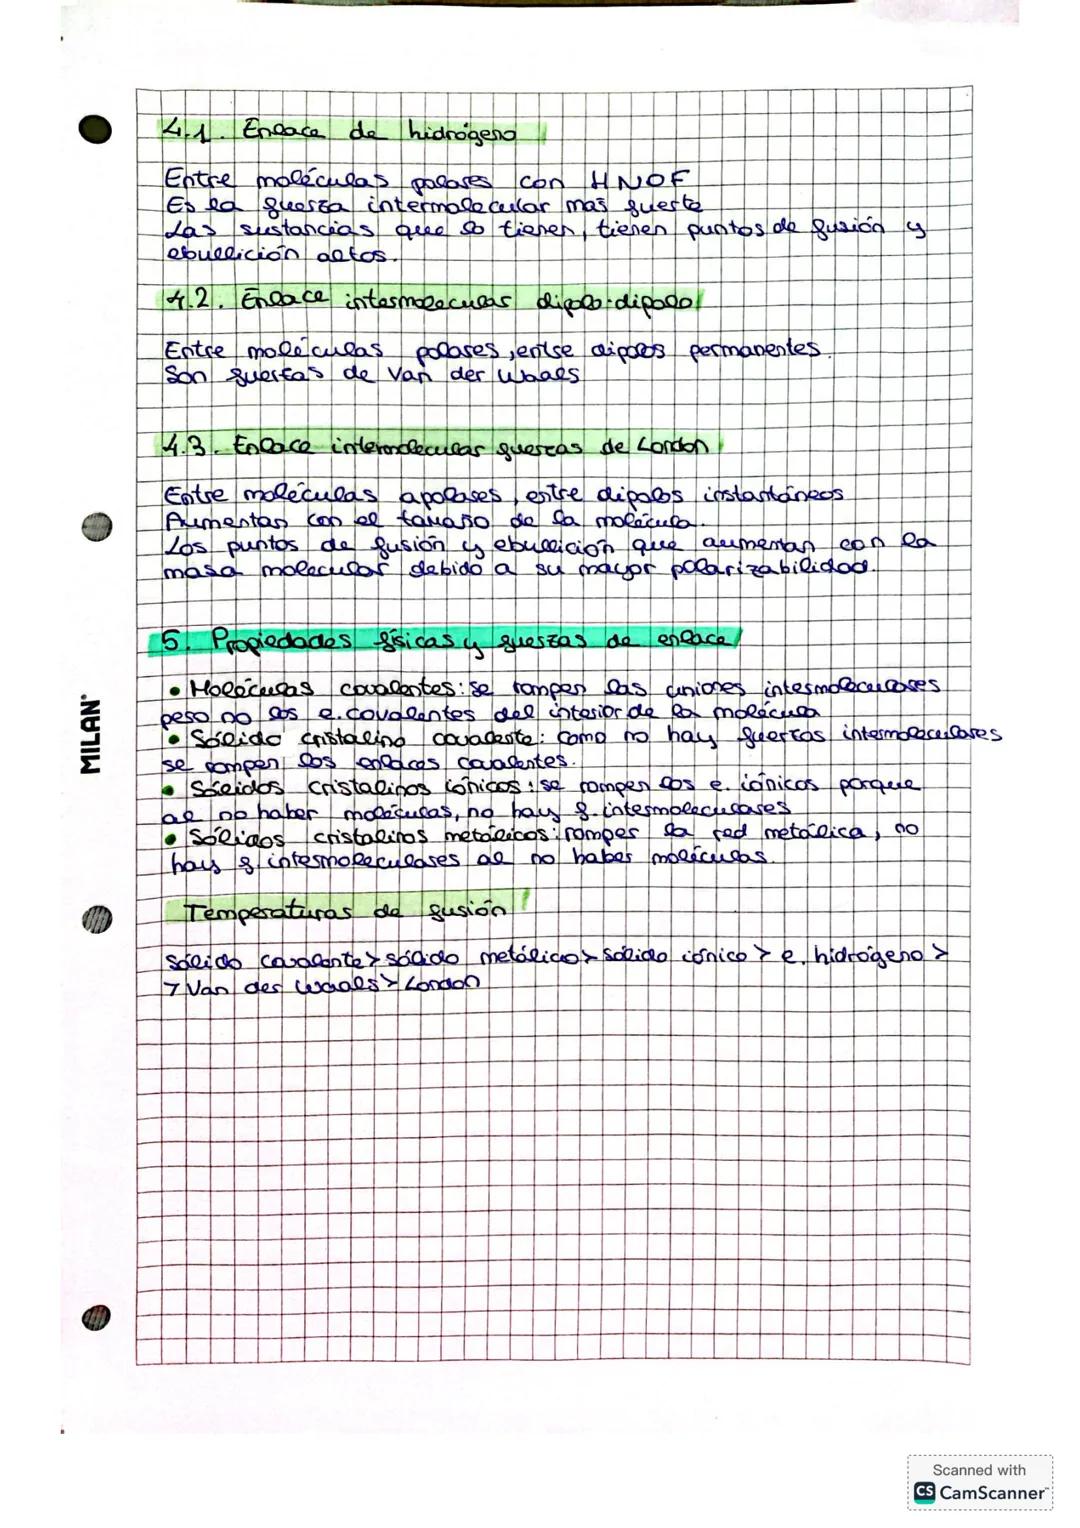 4.1. Enlace de hidrógeno
Entre moléculas polares con HNOF
Es la fuerza intermolecular mas fuerte
Las sustancias que lo tienen, tienen puntos de fusión y
ebullición altos.
4.2. Enlace intermolecular dipolo-dipolo
Entre moléculas polares, entre dipolos permanentes.
Son fuerzas de Van der Waals
4.3. Enlace intermolecular fuerzas de London
Entre moléculas apolares, entre dipolos instantáneos
Aumentan con el tamaño de la molécula.
Los puntos de fusión y ebullición que aumentan con la
masa molecular debido a su mayor polarizabilidad.
5. Propiedades físicas y fuerzas de enlace
• Moléculas covalentes: se rompen las uniones intermoleculares
pero no los e. covalentes del interior de la molécula
• Sólido cristalino covalente: como no hay fuerzas intermoleculares
se rompen los enlaces covalentes.
• Sólidos cristalinos iónicos: se rompen los e. iónicos porque
al no haber moléculas, no hay f. intermoleculares
• Sólidos cristalinos metálicos: romper la red metálica, no
hay f. intermoleculares al no haber moléculas.
Temperaturas de fusión
Sólido covalente > sólido metálico > sólido iónico > e. hidrógeno >
> Van der Waals > London
MILAN®
Scanned with
CS CamScanner™